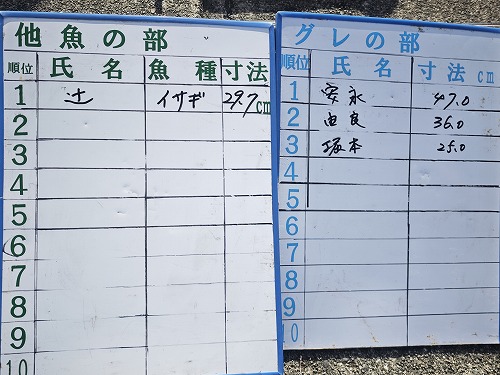 他魚の部
順位 氏名 魚種 寸法
1 辻 イサギ 29.7cm
2
3
4
5
6
7
8
9
10
グレの部
順位 氏名 寸法cm
1 安永 47.0
2 由良 36.0
3 塚本 25.0
4
5
6
7
8
9
10